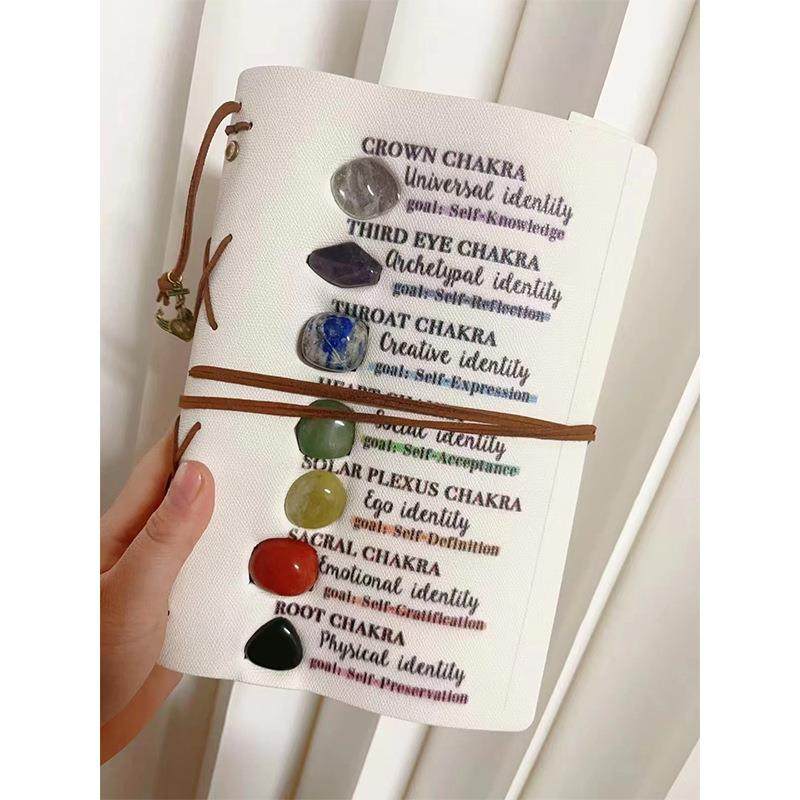 CROWN CHAKRA
Universal identity
goal: Self-Knowledge
THIRD EYE CHAKRA
Archetypal identity
goal: Self-Reflection
THROAT CHAKRA
Creative identity
goal: Self-Expression
HEART CHAKRA
Social identity
goal: Self-Acceptance
SOLAR PLEXUS CHAKRA
Ego identity
goal: Self-Definition
SACRAL CHAKRA
Emotional identity
goal: Self-Gratification
ROOT CHAKRA
Physical identity
goal: Self-Preservation